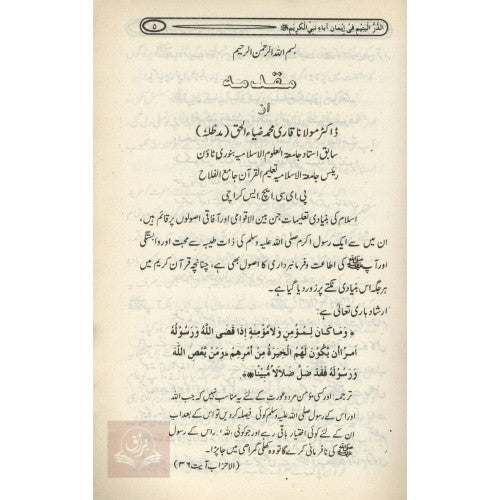 الدُّرُّ الْيَتِيْم فِیْ اِيْمَانِ آبَاءِ نَبِيِّ الْكَرِيْم ﷺ ۵
بسم اللہ الرحمن الرحیم
مقدمه
از
ڈاکٹر مولانا قاری محمد ضیاء الحق (مدظلہٗ)
سابق استاد جامعۃ العلوم الاسلامیہ بنوری ٹاؤن
رئیس جامعۃ الاسلامیہ تعلیم القرآن جامع الفلاح
پی.ای.سی.ایچ.ایس کراچی
اسلام کی بنیادی تعلیمات جن بین الاقوامی اور آفاقی اصولوں پر قائم ہیں،
ان میں سے ایک رسول اکرم صلی اللہ علیہ وسلم کی ذات طیبہ سے محبت اور وابستگی
اور آپ ﷺ کی اطاعت و فرمانبرداری کا اصول بھی ہے، چنانچہ قرآن کریم میں
ہر جگہ اس بنیادی نکتے پر زور دیا گیا ہے۔
ارشاد باری تعالیٰ ہے:
﴿ وَمَا كَانَ لِمُؤْمِنٍ وَّلَا مُؤْمِنَةٍ اِذَا قَضَى اللّٰهُ وَرَسُوْلُهٗ
اَمْرًا اَنْ يَّكُوْنَ لَهُمُ الْخِيَرَةُ مِنْ اَمْرِهِمْ ؕ وَمَنْ يَّعْصِ اللّٰهَ
وَرَسُوْلَهٗ فَقَدْ ضَلَّ ضَلٰلًا مُّبِيْنًا ﴾
ترجمہ: اور کسی مؤمن مرد و عورت کے لئے یہ مناسب نہیں کہ جب اللہ
اور اس کے رسول صلی اللہ علیہ وسلم کوئی فیصلہ کر دیں تو اس کے بعد اب
ان کے لئے کوئی اختیار باقی رہے اور جو کوئی اللہ اور اس کے رسول
ﷺ کی نافرمانی کرے گا تو وہ کھلی گمراہی میں جا پڑا۔
(الاحزاب آیت ۳۶)
براق